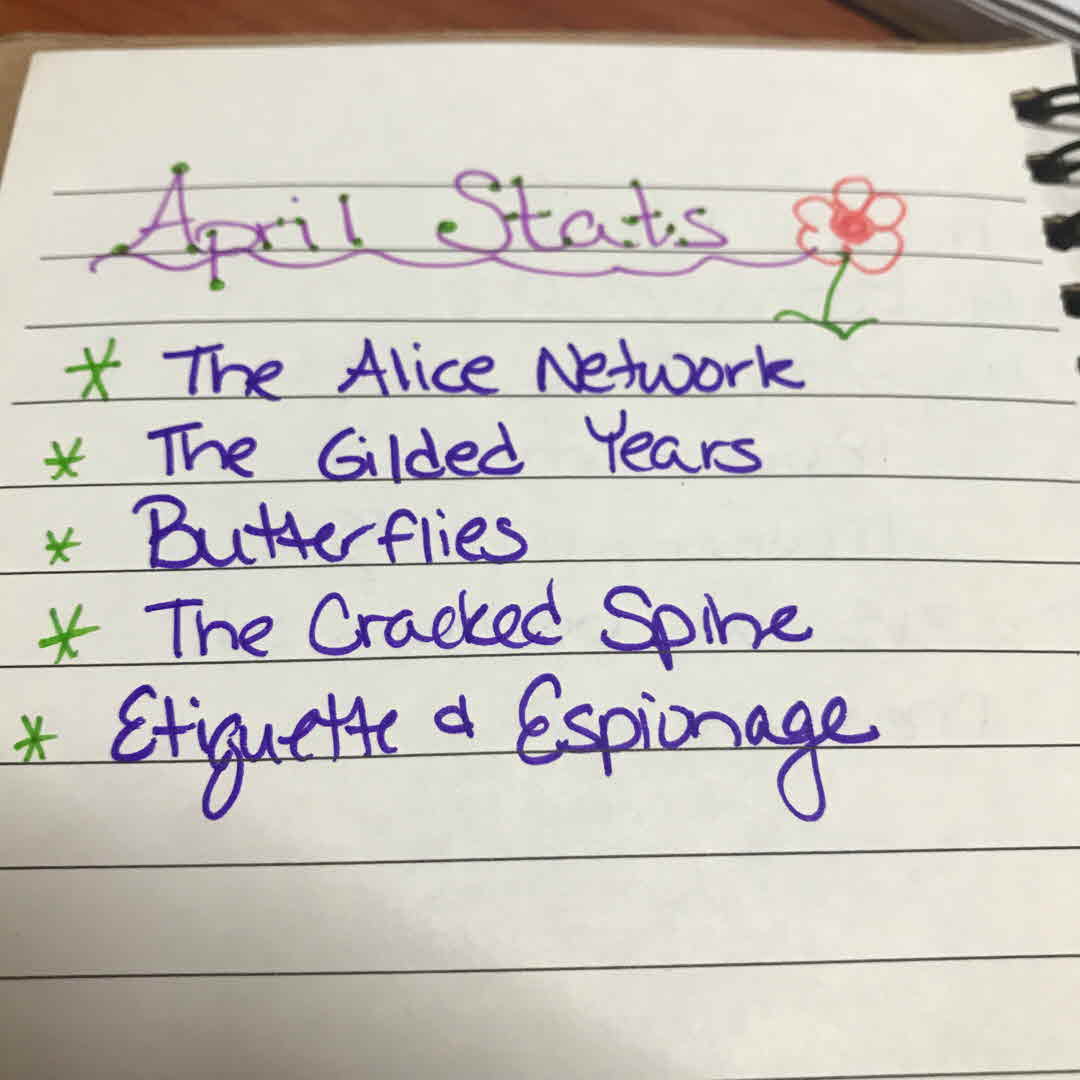 April Stats
* The Alice Network
* The Gilded Years
* Butterflies
* The Cracked Spine
* Etiquette & Espionage